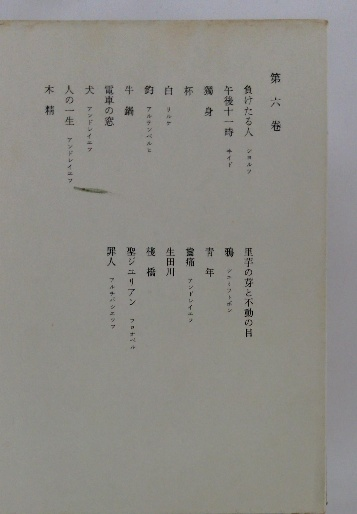 第六卷
負けたる人 ショルツ
午後十一時 ヰイド
獨身
杯
白 リルケ
釣 アルテンベルヒ
牛鍋
電車の窓
犬 アンドレイエフ
人の一生 アンドレイエフ
木精
里芋の芽と不動の目
鴉
青年
齒痛 アンドレイエフ
生田川
棧橋
聖ジユリアン フロオベル
罪人 アルチバシエツフ